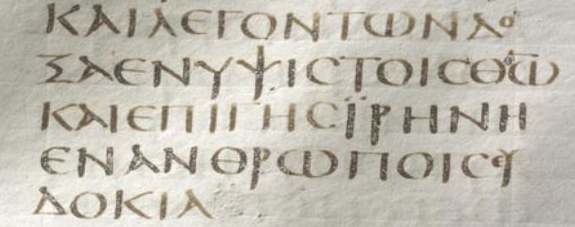 ΚΑΙΛΕΓΟΝΤΩΝΔΟ
ΞΑΕΝΥΨΙϹΤΟΙϹΘΩ̅
ΚΑΙΕΠΙΓΗϹΪΡΗΝΗ
ΕΝΑΝΘΡΩΠΟΙϹΕΥ
ΔΟΚΙΑ